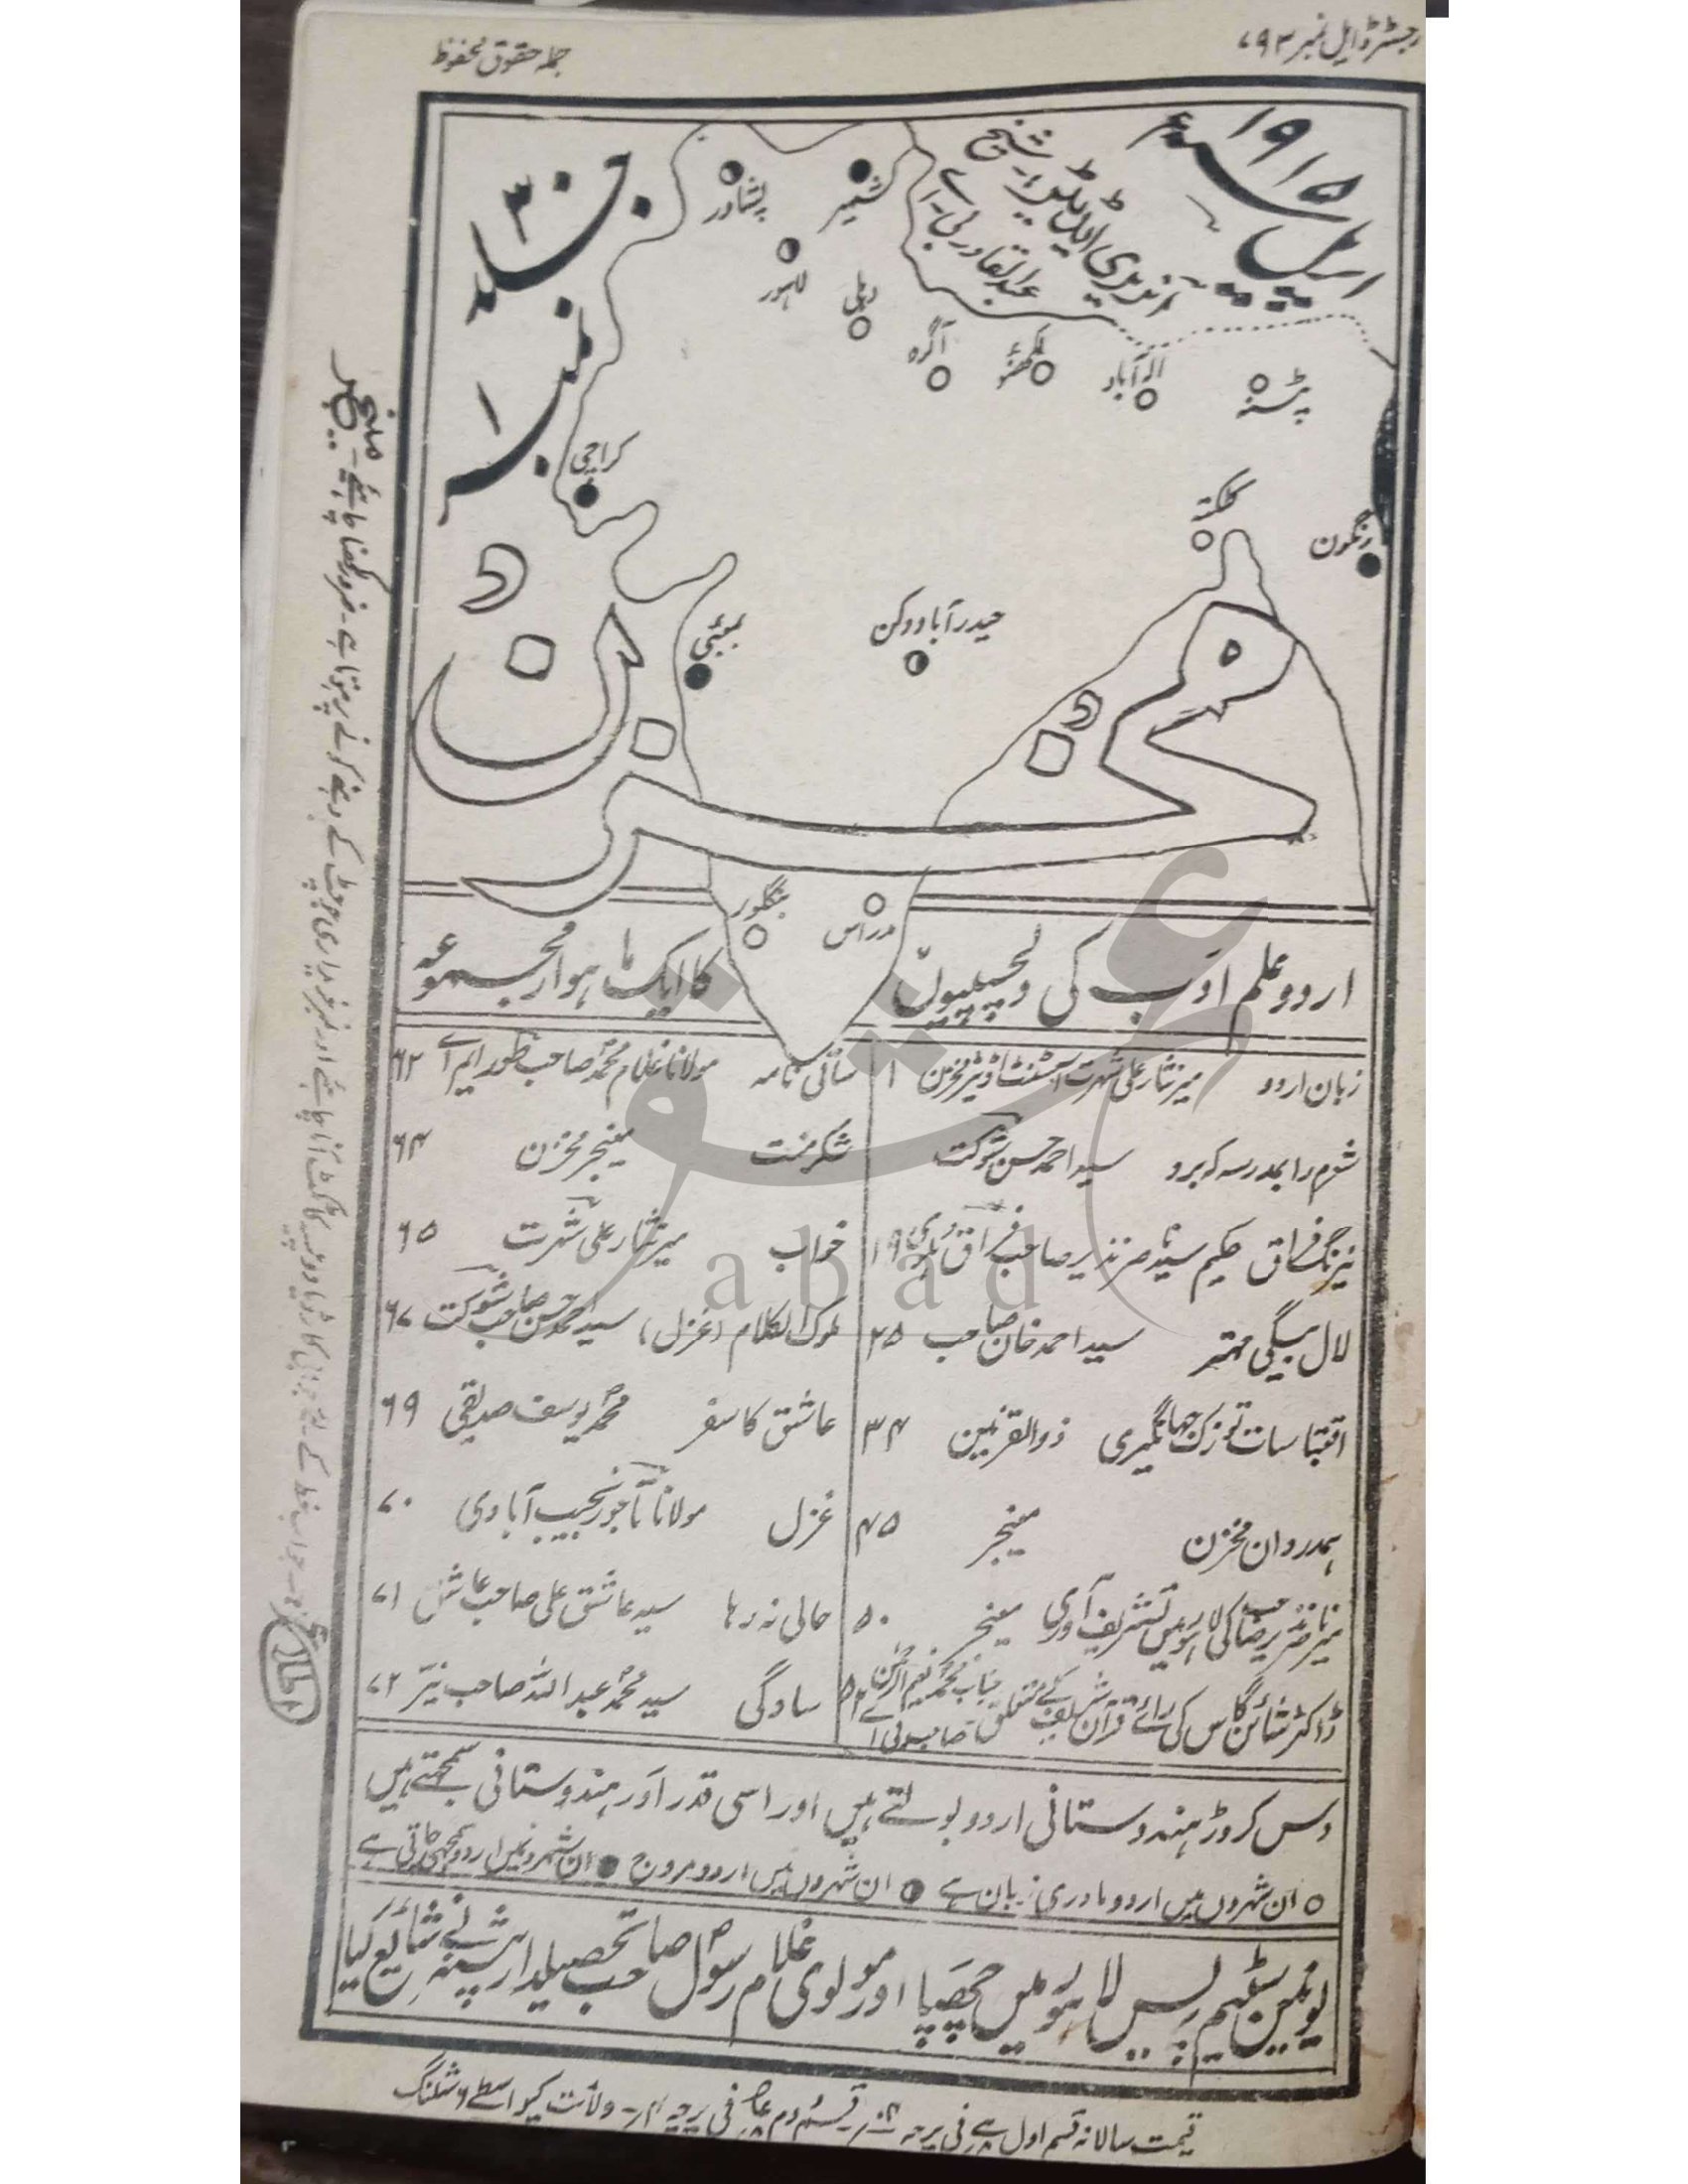 رجسٹرڈ ایل نمبر ۷۹۳
جملہ حقوق محفوظ
اپریل ۱۹۱۵ء
آنریری ایڈیٹر، شیخ
عبدالقادر بی۔ اے
جلد ۳۰
نمبر ۱
پشاور
کشمیر
لاہور
دہلی
آگرہ
لکھنؤ
الہ آباد
پٹنہ
کراچی
کلکتہ
رنگون
بمبئی
حیدرآباد دکن
مخزن
بنگلور
مدراس
اردو علم ادب کی دلچسپیوں کا ایک ماہوار مجموعہ
زبان اردو میر نثار علی شہرت اسسٹنٹ اڈیٹر مخزن ۱
شعرم را بمدرسہ کہ برد سید احمد حسن شوکت
نیرنگ فراق حکیم سید ناصر نذیر صاحب فراق دہلوی ۱۹
لال بیگی مہتر سید احمد خان صاحب ۲۵
اقتباسات توزک جہانگیری ذوالقرنین ۳۴
ہمدردان مخزن مینجر ۴۵
میر ناصر نذیر صاحب کی لاہور میں تشریف آوری مینجر ۵۰
ڈاکٹر شائن گاس کی رائے قرآن شریف کے متعلق جناب محمد نعیم الرحمن صاحب بی اے ۵۲
ساقی نامہ مولانا غلام محمد صاحب طور ایم اے ۶۲
شکر منت مینجر مخزن ۶۴
خواب میر نثار علی شہرت ۶۵
ملوک الکلام (غزل) سید احمد حسن صاحب شوکت ۶۷
عاشق کا سفر محمد یوسف صدیقی ۶۹
غزل مولانا تاجور نجیب آبادی ۷۰
حالی نہ رہا سید عاشق علی صاحب عاشق ۷۱
سادگی سید محمد عبداللہ صاحب نیّر ۷۲
دس کروڑ ہندوستانی اردو بولتے ہیں اور اسی قدر اَور ہندوستانی سمجھتے ہیں
○ ان شہروں میں اردو مادری زبان ہے ◑ ان شہروں میں اردو مروج ● ان شہروں میں اردو سمجھی جاتی ہے
یونین سٹیم پریس لاہور میں چھپا اور مولوی غلام رسول صاحب تحصیلدار پنشنر نے شائع کیا
قیمت سالانہ قسم اول فی پرچہ قسم دوم فی پرچہ ولائت کیواسطے ۶ شلنگ
abad